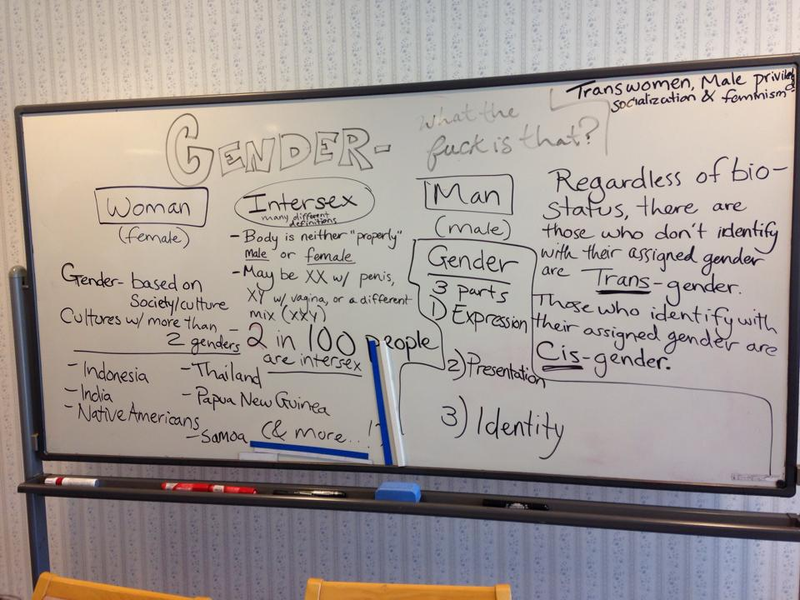 Transwomen, Male privilege
socialization & feminism
GENDER-
what the
fuck is that?
Woman
(female)
Gender- based on
Society/culture
Cultures w/ more than
2 genders
- Indonesia
- India
- Native Americans
- Thailand
- Papua New Guinea
- Samoa (& more...!)
Intersex
many different
definitions
- Body is neither "properly"
male or female
- May be XX w/ penis,
XY w/ vagina, or a different
mix (XXY)
- 2 in 100 people
are intersex
Man
(male)
Gender
3 parts
1) Expression
2) Presentation
3) Identity
Regardless of bio-
status, there are
those who don't identify
with their assigned gender
are Trans-gender.
Those who identify with
their assigned gender are
Cis-gender.